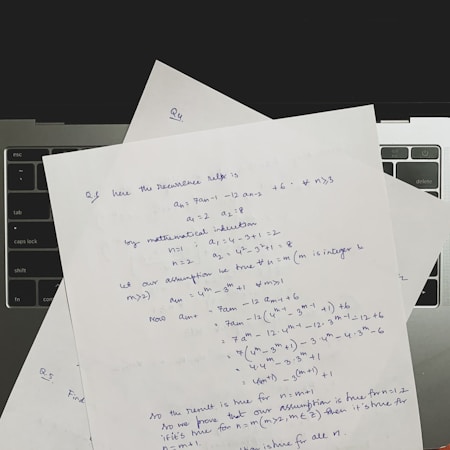 esc
tab
caps lock
shift
delete
Q4.
Q3
Find
Q.1 here the recurrence reln is
an = 7an-1 - 12 an-2 + 6 · ∀ n≥3
a1 = 2 a2 = 8
by mathematical induction
n=1 ; a1 = 4-3+1 = 2
n=2 a2 = 4²-3²+1 = 8
let our assumption be true ∀ n = m (m is integer &
m≥2) am = 4^m - 3^m + 1 ∀ m≥1
now am+1 = 7am - 12 am-1 + 6
= 7am - 12(4^m-1 - 3^m-1 + 1) + 6
= 7am - 12·4^m-1 + 12·3^m-1 - 12 + 6
= 7(4^m - 3^m + 1) - 3·4^m - 4·3^m - 6
= 4·4^m - 3·3^m + 1
= 4^(m+1) - 3^(m+1) + 1
So the result is true for n = m+1
so we prove that our assumption is true for n=1,2
if it's true for n=m (m≥2, m∈Z) then it's true for
n=m+1.
is true for all n.